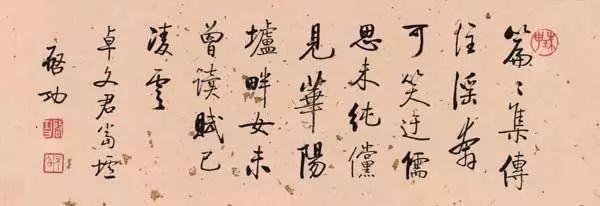 篇〻集傳
注淫奔
可笑迂儒
思未純儻
見華陽
壚畔女未
曾讀賦已
凌雲
卓文君當壚
啓功